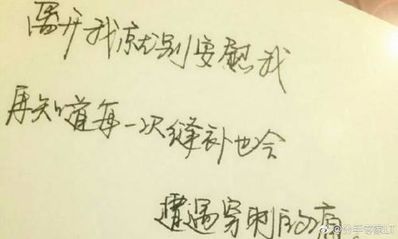 离开我就别安慰我
再知道每一次缝补也会
遭遇穿刺的痛。
@分手管家LT